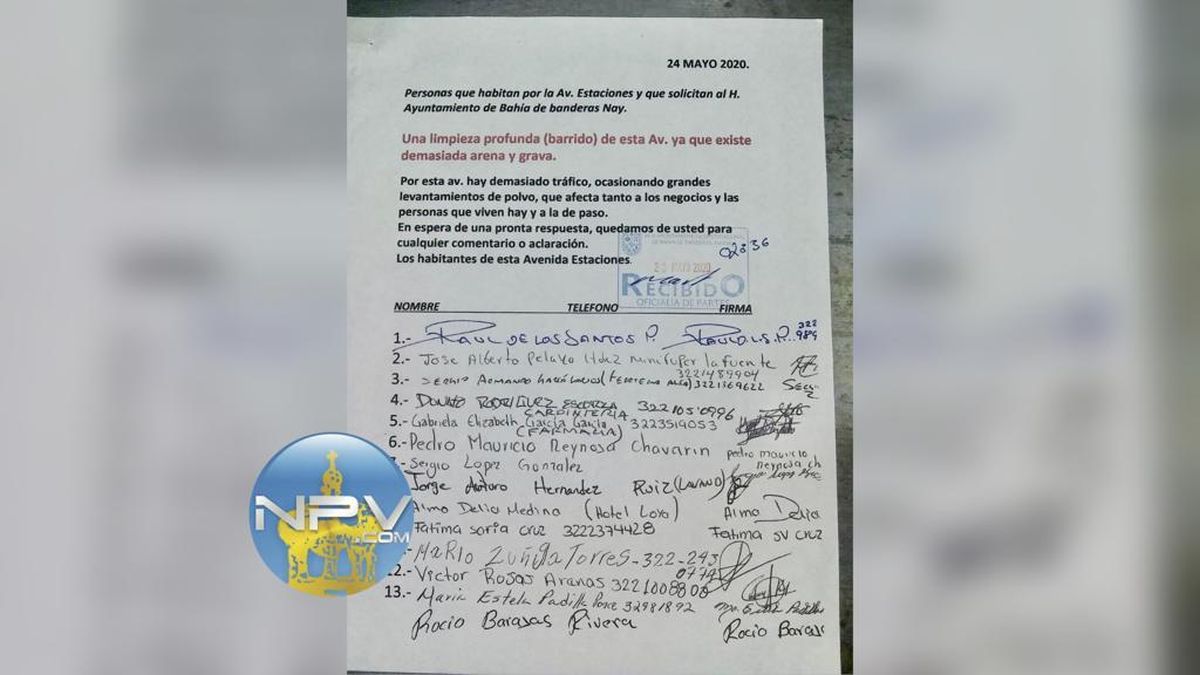 24 MAYO 2020.
Personas que habitan por la Av. Estaciones y que solicitan al H.
Ayuntamiento de Bahía de banderas Nay.
Una limpieza profunda (barrido) de esta Av. ya que existe
demasiada arena y grava.
Por esta av. hay demasiado tráfico, ocasionando grandes
levantamientos de polvo, que afecta tanto a los negocios y las
personas que viven hay y a la de paso.
En espera de una pronta respuesta, quedamos de usted para
cualquier comentario o aclaración.
Los habitantes de esta Avenida Estaciones.
RECIBIDO
OFICIALIA DE PARTES
NOMBRE TELEFONO FIRMA
1.- RAUL DE LOS SANTOS P. 322
2.- Jose Alberto Pelayo Hdez minisuper la fuente
3221489904
3.- SERGIO ARMANDO 3221369622
4.- DONATO RODRIGUEZ 3221050996
CARPINTERIA
5.- Gabriela Elizabeth García García 3223519053
(FARMACIA)
6.- Pedro Mauricio Reynosa Chavarin pedro mauricio
reynosa ch
.- Sergio Lopez Gonzalez
Jorge Arturo Hernandez Ruiz (LAVADO)
Alma Delia Medina (Hotel Loro) Alma Delia
Fatima soria cruz 3222374428 Fatima SV cruz
.- MaRIO Zuñiga Torres - 322-293
0774
2.- Victor Rosas Aranas 3221008808
13.- Maria Estela Padilla Ponce 32981892
Rocio Barajas Rivera Rocio Baraj
NPV
.COM